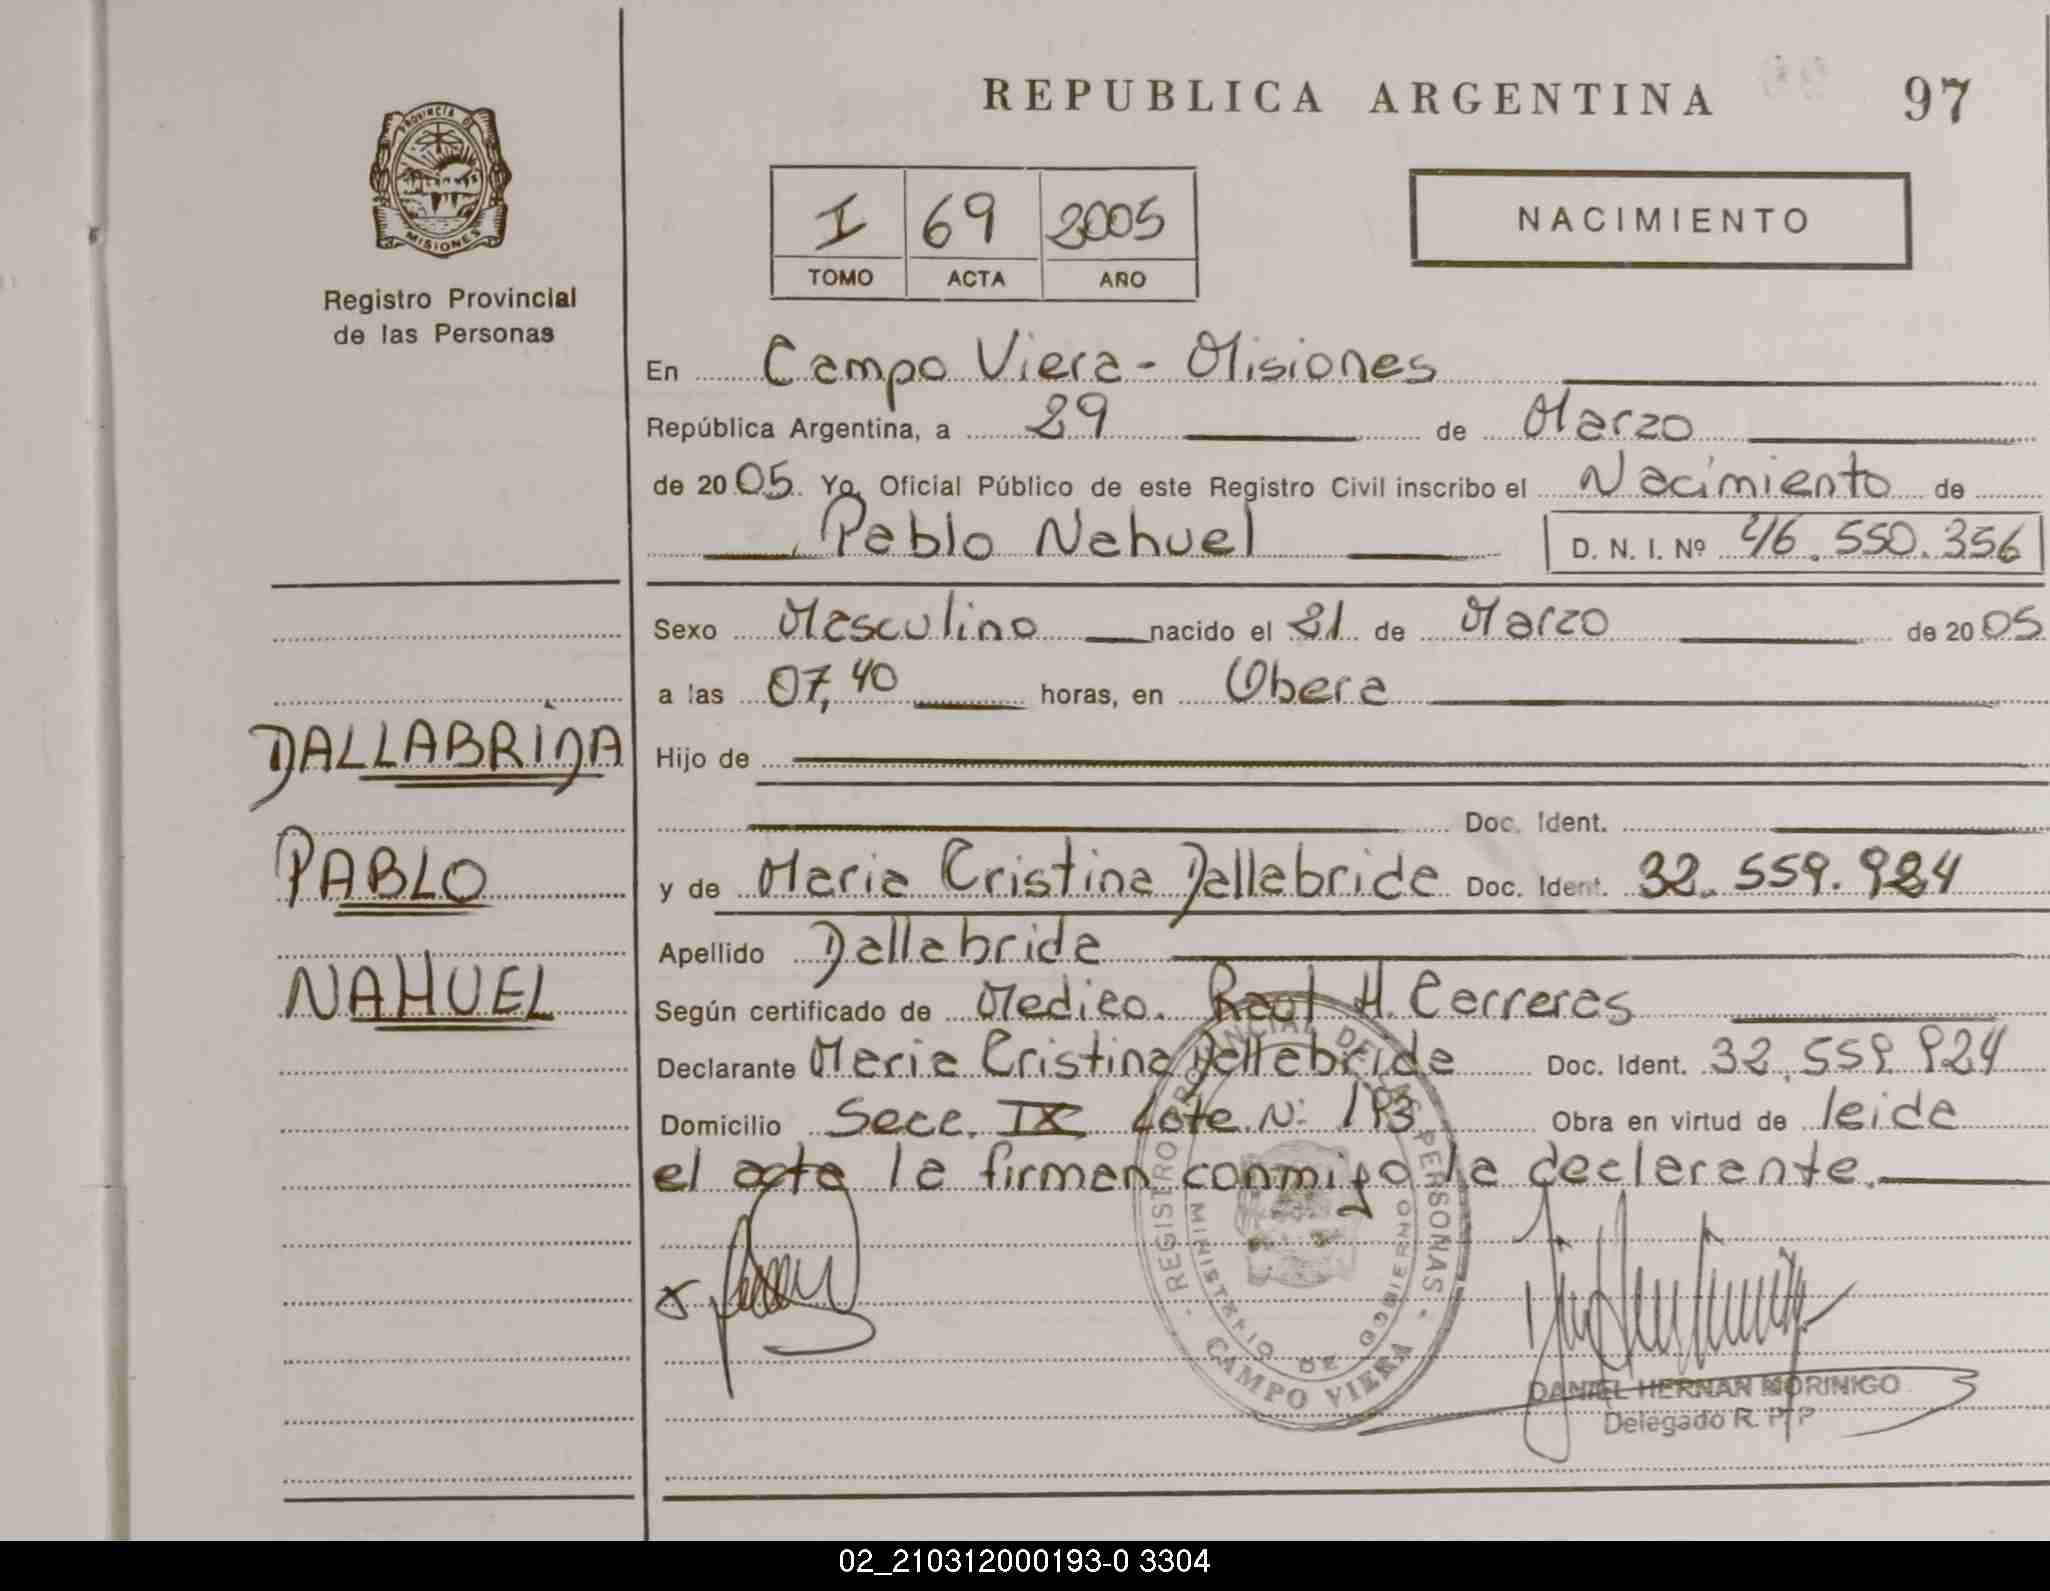 REPUBLICA ARGENTINA
97
PROVINCIA DE
MISIONES
Registro Provincial
de las Personas
I 69 2005
TOMO ACTA AÑO
NACIMIENTO
En Campo Viera - Misiones
República Argentina, a 29 de Marzo
de 2005. Yo, Oficial Público de este Registro Civil inscribo el Nacimiento de
Pablo Nahuel D. N. I. Nº 46.550.356
Sexo Masculino nacido el 21 de Marzo de 2005
a las 07,40 horas, en Obera
DALLABRIDA
Hijo de
Doc. Ident.
PABLO
y de Maria Cristina Dallabrida Doc. Ident. 32.559.924
Apellido Dallabrida
NAHUEL
Según certificado de Medico. Raul H. Carreras
Declarante Maria Cristina Dallabrida Doc. Ident. 32.559.924
Domicilio Secc. IX Lote Nº 193 Obra en virtud de leida
el acta la firman conmigo la declarante.
REGISTRO PROVINCIAL DE LAS PERSONAS
MINISTERIO DE GOBIERNO
CAMPO VIERA
DANIEL HERNAN MORINIGO
Delegado R. P. P
02_210312000193-0 3304